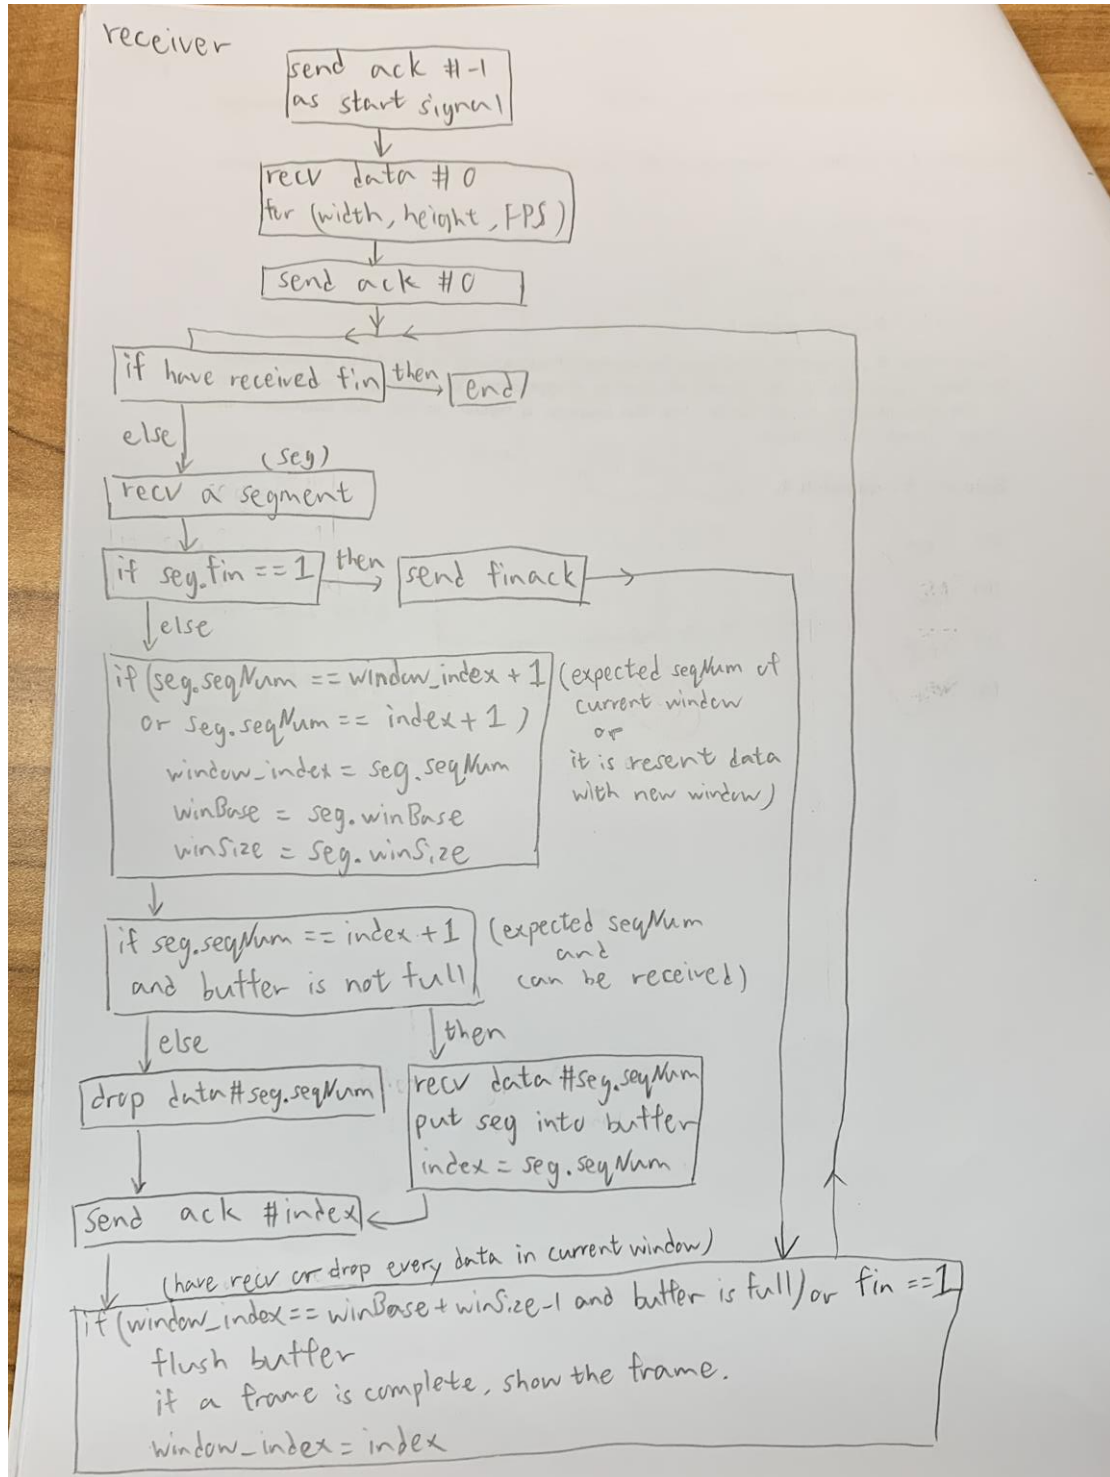 receiver
send ack #-1
as start signal
recv data #0
for (width, height, FPS)
send ack #0
if have received fin
then
end
else
(seg)
recv a segment
if seg.fin == 1
then
send finack
else
if (seg.seqNum == window_index + 1
or seg.seqNum == index + 1)
window_index = seg.seqNum
winBase = seg.winBase
winSize = seg.winSize
(expected seqNum of
current window
or
it is resent data
with new window)
if seg.seqNum == index + 1
and buffer is not full
(expected seqNum
and
can be received)
else
then
drop data#seg.seqNum
recv data #seg.seqNum
put seg into buffer
index = seg.seqNum
send ack #index
(have recv or drop every data in current window)
if (window_index == winBase + winSize-1 and buffer is full) or fin ==1
flush buffer
if a frame is complete, show the frame.
window_index = index